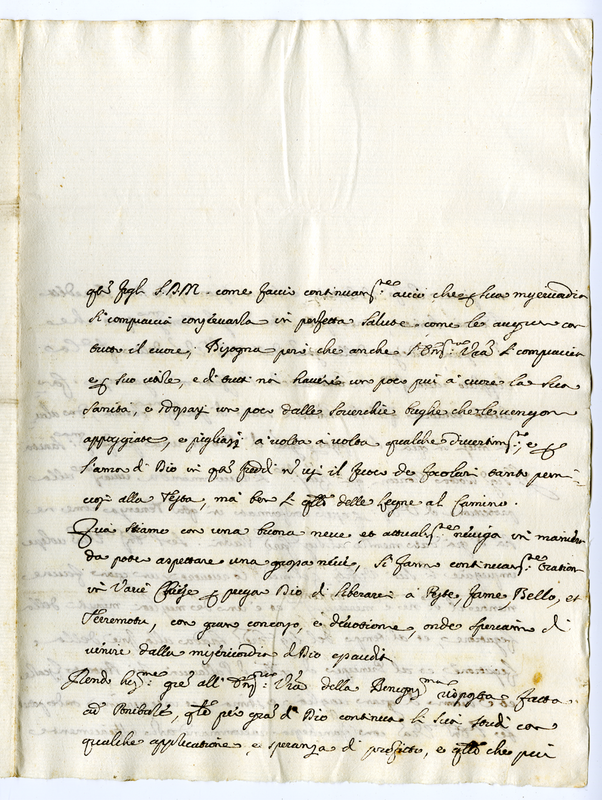 come faccio continuam.te acciò che p sua misericordia
si compiaccia conservarla in perfetta salute come le auguro con
tutto il cuore, Bisogna però che anche si compiaccia
p suo utile, e di tutti noi haversi un poco più à cuore la sua
sanità, e un poco dalle soverchie brighe che le vengon
appoggiate, e pigliarsi a volta à volta qualche divertim.to, e p
l'amor di Dio in q.ti freddi n usi il fuoco de focolari tanto perni-
ciosi alla Testa, mà ben si q.llo delle Legne al Camino.
Quà stiamo con una buona neve et attualm.te neviga in maniera
da poter aspettare una grossa neve, si fanno continuam.te Orationi
in varie Chiese p pregar Dio di liberarci à Peste, fame, Bello, et
Terremotu, con gran concorso, e devotione, onde speriamo di
venire dalla misericordia di Dio esauditi
Rendo gre all' della risposta fatta
ad q.llo per gra di Dio continua li suoi studi con
qualche applicatione, e speranza di profitto, e q.llo che più